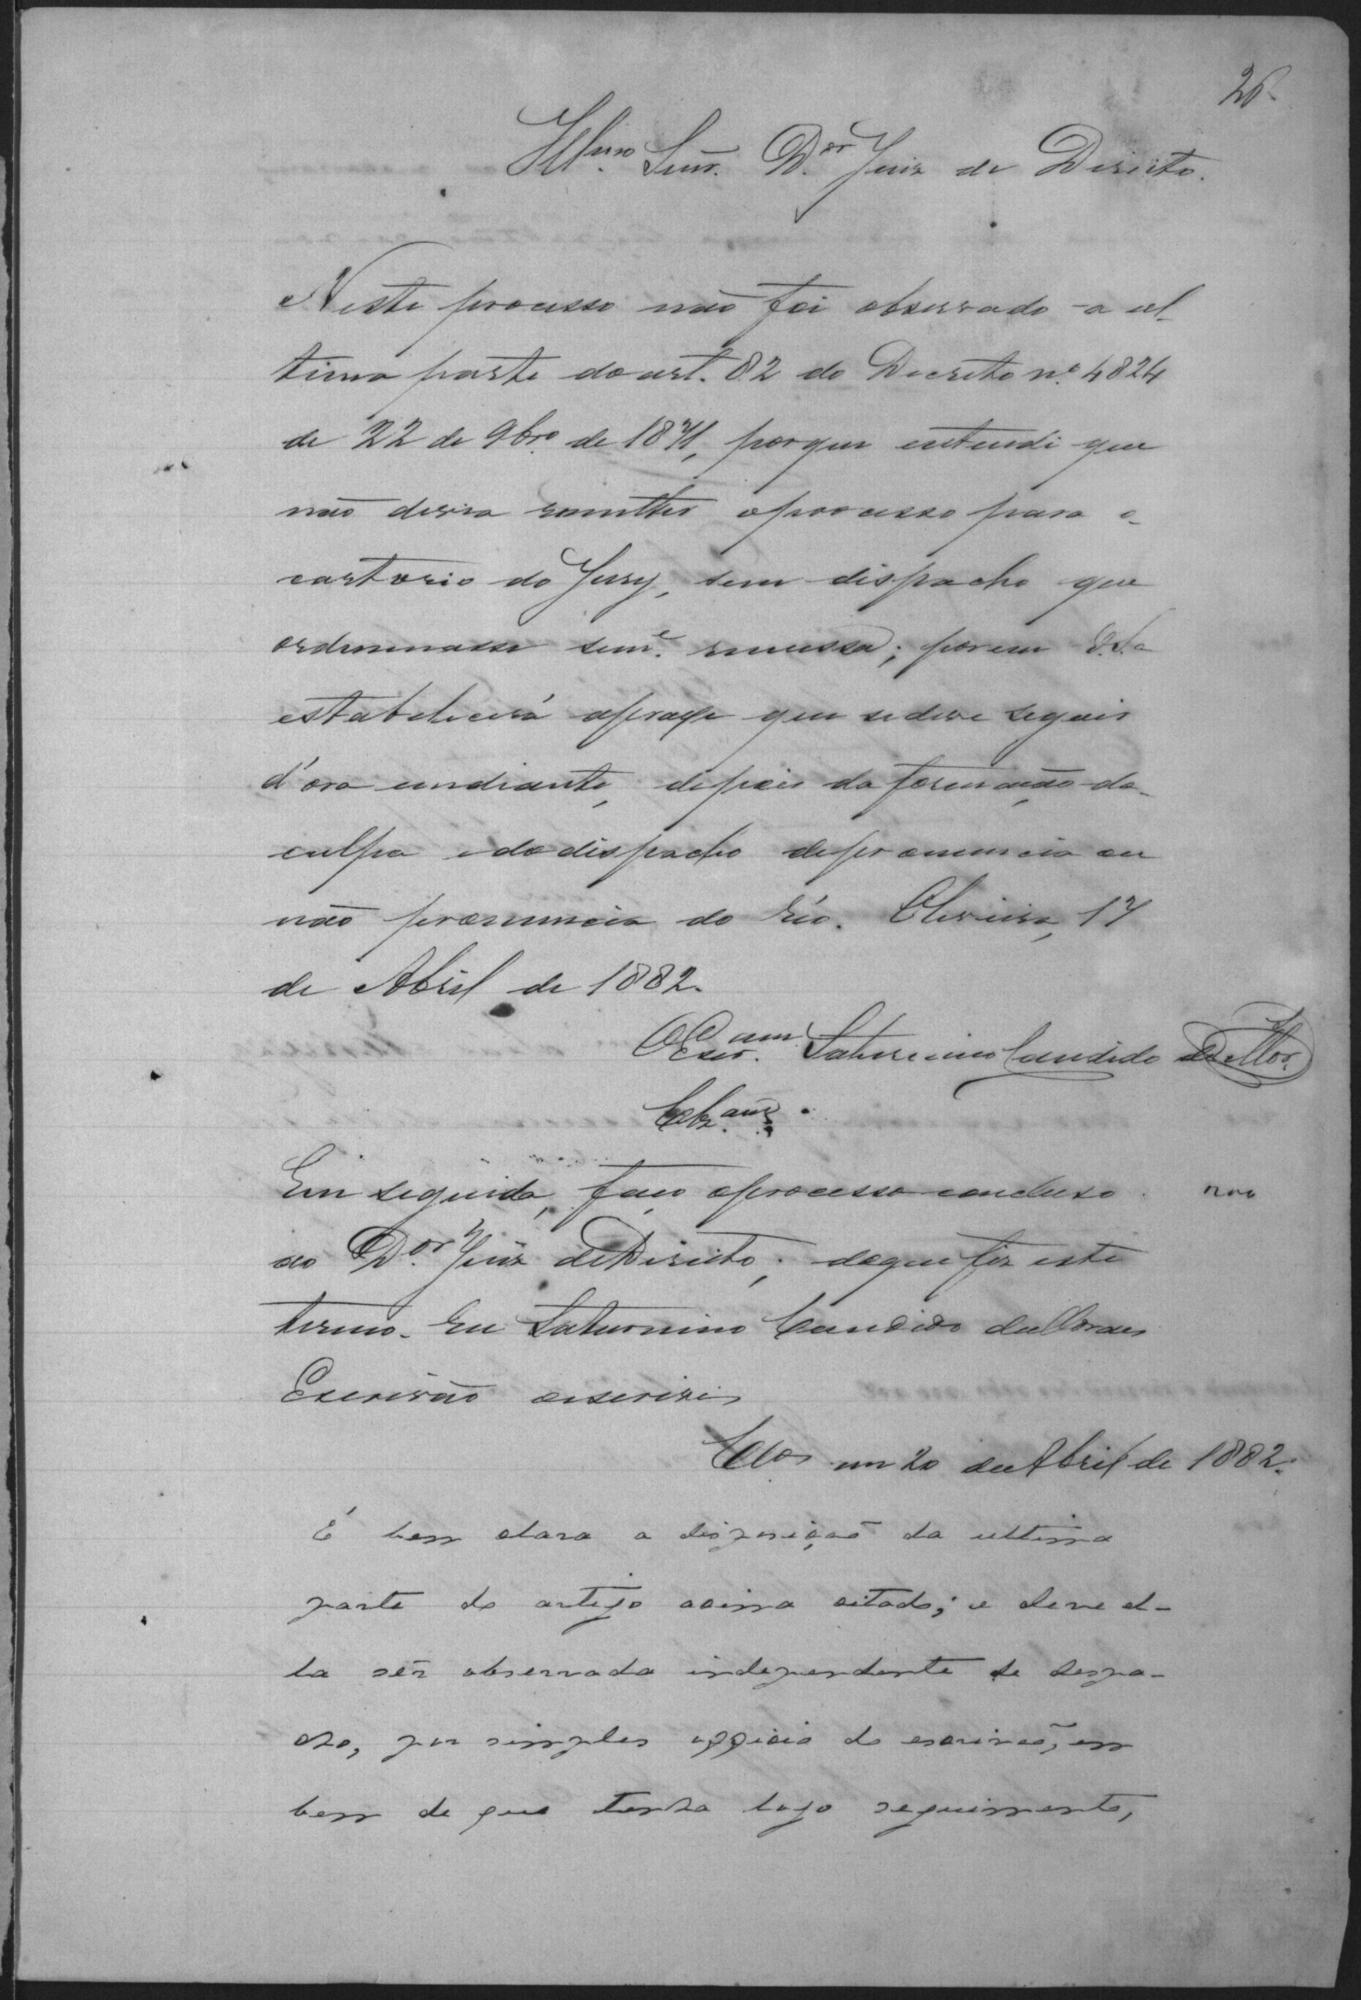 26
Illmo. Senr. Dor. Juiz de Direito.
Neste processo não foi observado a ul-
tima parte do art. 82 do Decreto nº 4824
de 22 de 9bro de 1871, porque entendi que
não devia remetter o processo para o
cartorio do Jury, sem despacho que
ordenasse seme. remessa; porem V.Sa
estabelecerá a praxe que se deve seguir
d'ora em diante, depois da formação da
culpa e do dispacho de pronuncia ou
não pronuncia do réo. Oliveira, 17
de Abril de 1882.
O Escram. Saturnino Candido de Mor.
Clsam.
Em seguida, faço o processo concluso
ao Dor. Juiz de Direito; do que fiz este
termo. Eu Saturnino Candido de Moraes
Escrivão o escrivi
Clos em 20 de Abril de 1882.
É bem clara a disposição da ultima
parte do artigo acima citado; e deve el-
la ser observada independente de despa-
cho, por simples officio do escrivão, em
bem de que tenha logo seguimento,